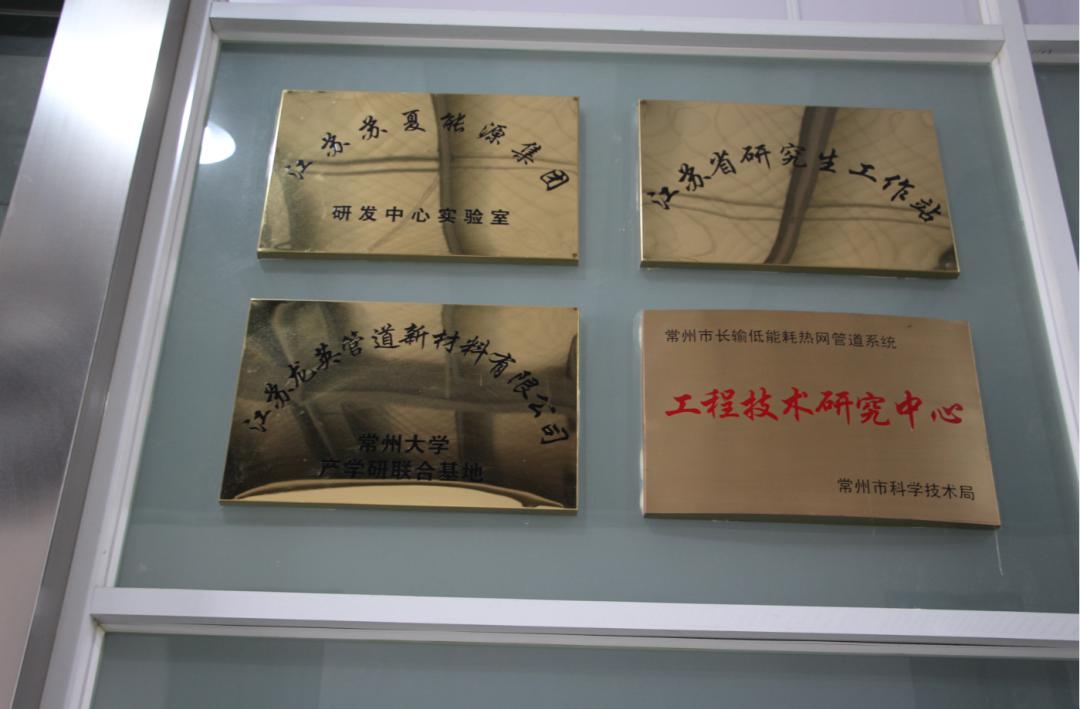 江苏苏夏能源集团
研发中心实验室
江苏省研究生工作站
江苏龙英管道新材料有限公司
常州大学
产学研联合基地
常州市长输低能耗热网管道系统
工程技术研究中心
常州市科学技术局